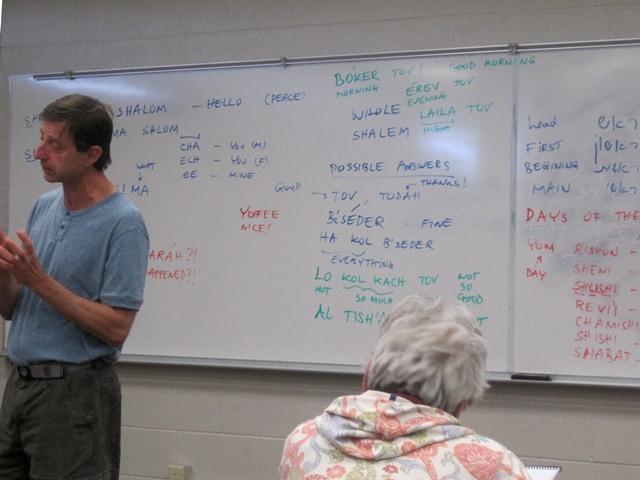 SHALOM - HELLO (PEACE)
MA SHLOM
CHA - YOU (M)
ECH - YOU (F)
EE - MINE
WHAT
MA
YOFEE
NICE!
ARÁH?!
APPENED?!
BÓKER TOV! GOOD MORNING
MORNING
ÉREV TOV
EVENING
WHOLE LAILA TOV
NIGHT
SHALEM
POSSIBLE ANSWERS
THANKS!
GOOD → TOV, TODÁH
B'SEDER - FINE
HA KOL B'SEDER
EVERYTHING
LO KOL KACH TOV NOT SO GOOD
NOT SO MUCH
AL TISH'
head
FIRST
BEGINING
MAIN
DAYS OF THE
YOM RISHON -
DAY SHENI
SHLISHI -
REVI'I -
CHAMISHI
SHISHI -
SHABAT -